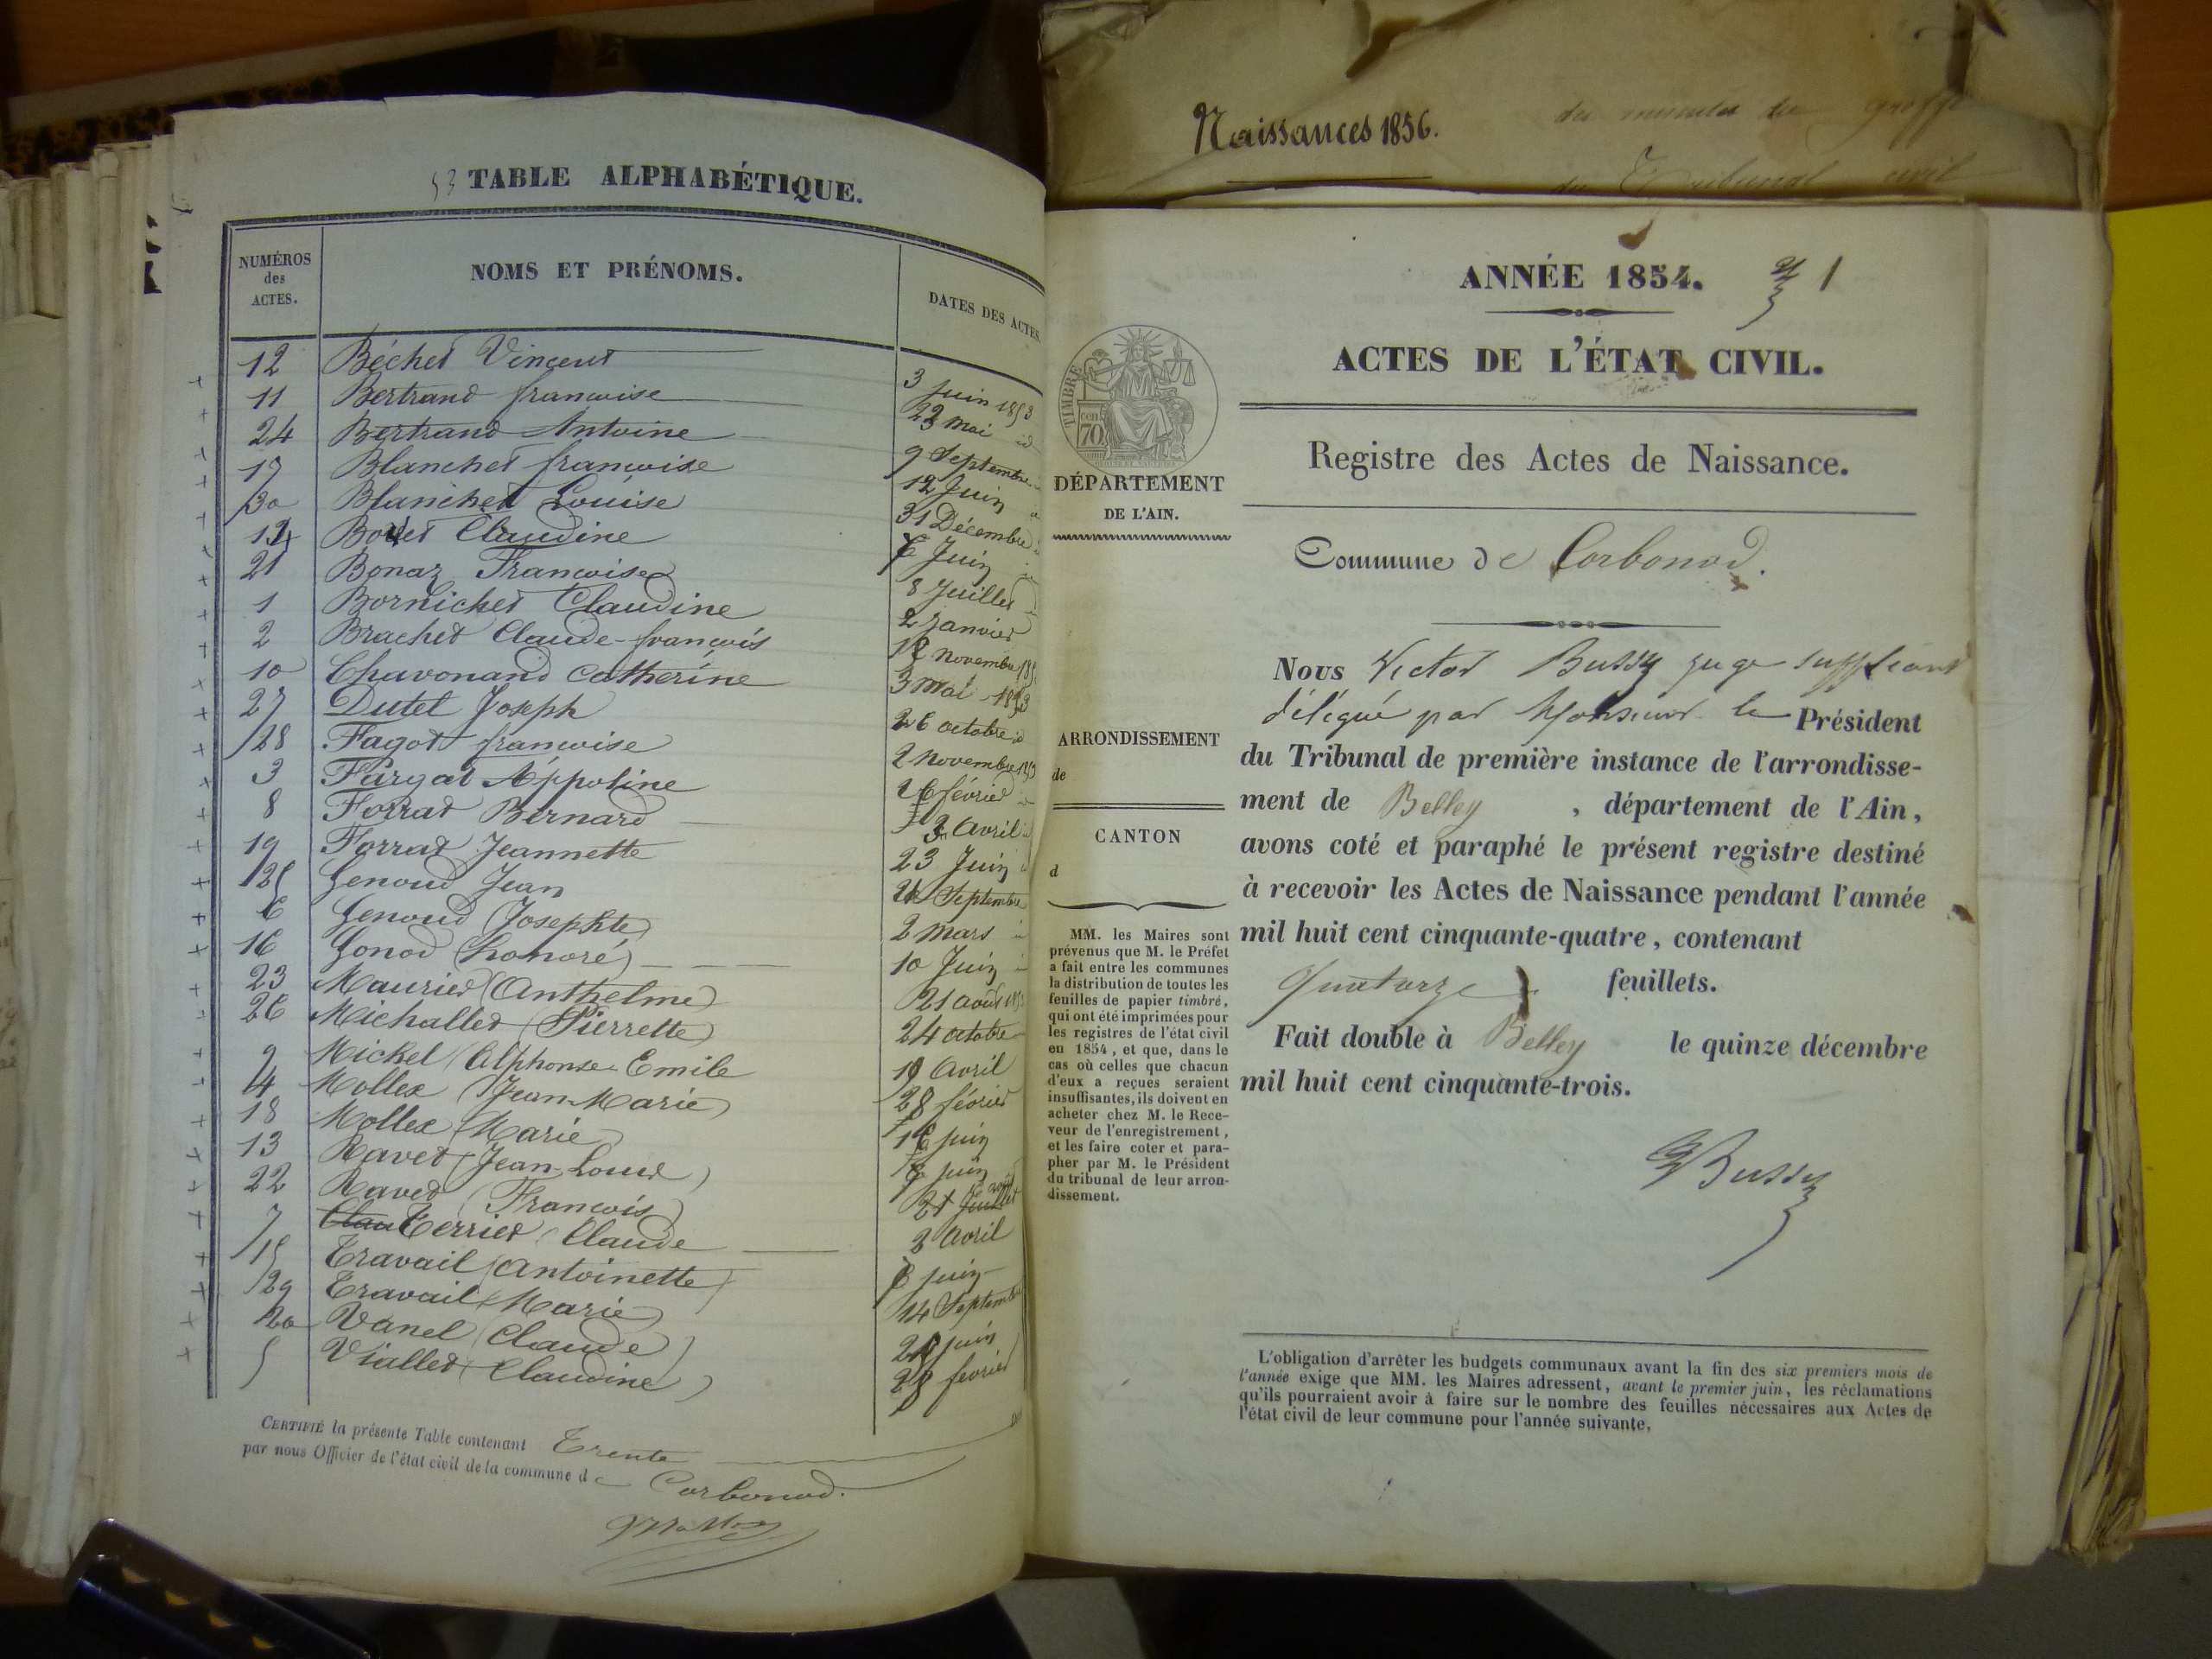 53 TABLE ALPHABÉTIQUE.
NUMÉROS
des
ACTES.
NOMS ET PRÉNOMS.
DATES DES ACTES
12 Béchet Vincent 3 juin 1853
11 Bertrand francoise 22 mai id
24 Bertrand Antoine 9 Septembre
17 Blanchet francoise 12 Juin
30 Blanchet Louise 31 Décembre
Claudine Juin
21 Bonaz Francoise 8 Juillet
1 Bornichet Claudine 2 Janvier
2 Brachet Claude-francois novembre
10 Chavonand Catherine 3 Mai 1853
27 Dutel Joseph 26 octobre id
28 Fagot francoise 2 Novembre 1853
3 Fargat Appoline 26 février
8 Forrat Bernard 3 Avril
19 Forrat Jeannette 23 Juin
25 Genoud Jean Septembre
6 Genoud (Josephte) 2 mars
16 Gonod (honoré) 10 Juin
23 Maurier (Anthelme) 21 août 1853
26 Michallet (Pierrette) 24 octobre
9 Mickel (Alphonse-Emile 19 Avril
4 Mollex (Jean-Marie) 28 février
18 Mollex (Marie) 16 juin
13 Ravet (Jean-Louis) 6 juin
22 Ravet (Francois) août
7 Clau Terrier (Claude 2 Avril
15 Travail (Antoinette) juin
29 Travail (Marie) 14 Septembre
20 Vanel (Claude) juin
5 Viallet (Claudine) 28 fevrier
CERTIFIÉ la présente Table contenant Trente
par nous Officier de l'état civil de la commune de Corbonod.
Naissances 1856.
des minutes du greffe
du Tribunal civil
ANNÉE 1854. 1
ACTES DE L'ÉTAT CIVIL.
Registre des Actes de Naissance.
Commune de Corbonod.
TIMBRE
cen
70
DÉPARTEMENT
DE L'AIN.
ARRONDISSEMENT
de
CANTON
d
MM. les Maires sont
prévenus que M. le Préfet
a fait entre les communes
la distribution de toutes les
feuilles de papier timbré,
qui ont été imprimées pour
les registres de l'état civil
en 1854, et que, dans le
cas où celles que chacun
d'eux a reçues seraient
insuffisantes, ils doivent en
acheter chez M. le Rece-
veur de l'enregistrement,
et les faire coter et para-
pher par M. le Président
du tribunal de leur arron-
dissement.
Nous Victor Bussy juge suppléant
délégué par Monsieur le Président
du Tribunal de première instance de l'arrondisse-
ment de Belley, département de l'Ain,
avons coté et paraphé le présent registre destiné
à recevoir les Actes de Naissance pendant l'année
mil huit cent cinquante-quatre, contenant
Quatorze feuillets.
Fait double à Belley le quinze décembre
mil huit cent cinquante-trois.
Bussy
L'obligation d'arrêter les budgets communaux avant la fin des six premiers mois de
l'année exige que MM. les Maires adressent, avant le premier juin, les réclamations
qu'ils pourraient avoir à faire sur le nombre des feuilles nécessaires aux Actes de
l'état civil de leur commune pour l'année suivante.